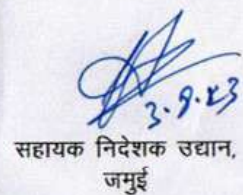 3.9.23
सहायक निदेशक उद्यान,
जमुई